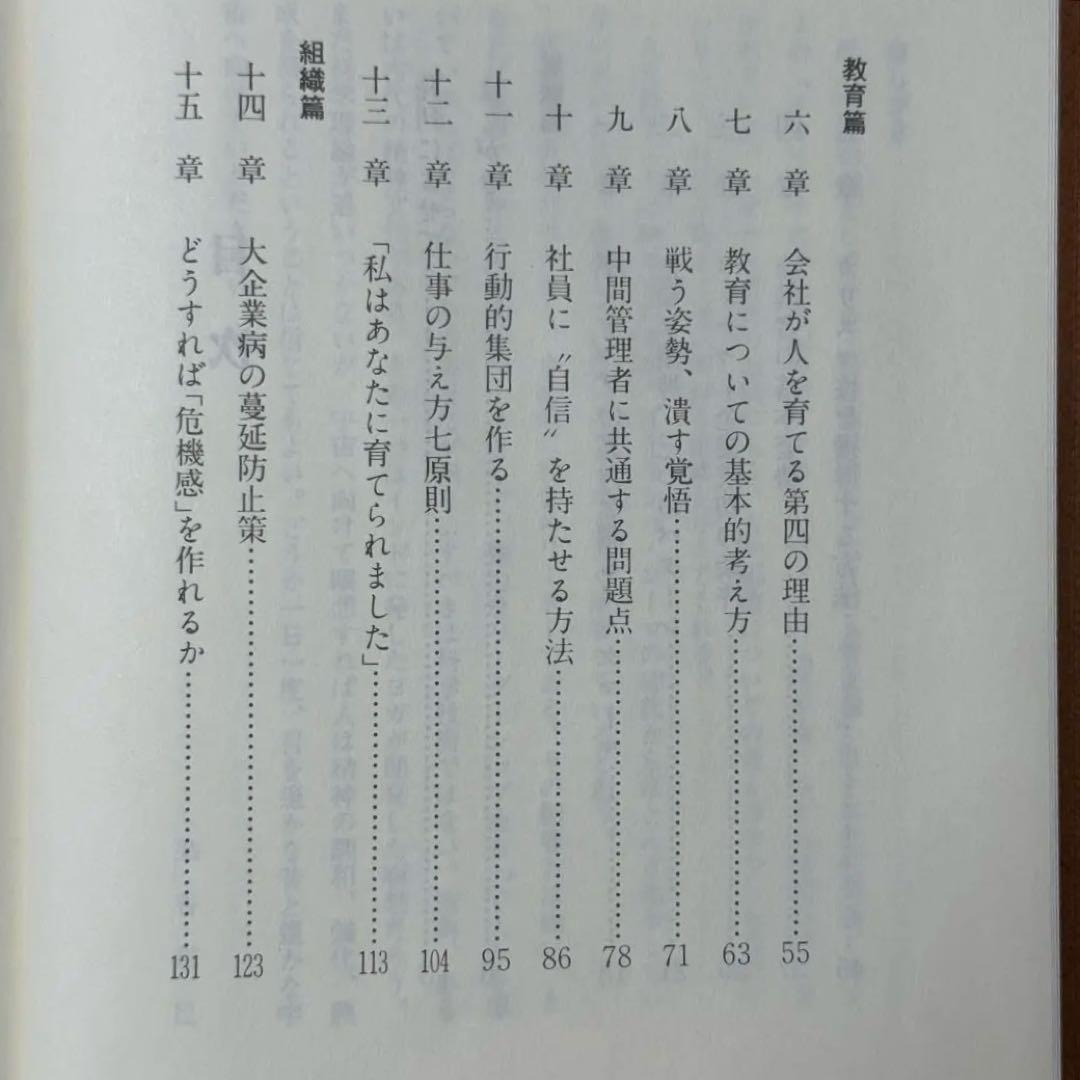 教育篇
六章 会社が人を育てる第四の理由……………………55
七章 教育についての基本的考え方……………………63
八章 戦う姿勢、潰す覚悟……………………71
九章 中間管理者に共通する問題点……………………78
十章 社員に〝自信〟を持たせる方法……………………86
十一章 行動的集団を作る……………………95
十二章 仕事の与え方七原則……………………104
十三章 「私はあなたに育てられました」……………………113
組織篇
十四章 大企業病の蔓延防止策……………………123
十五章 どうすれば「危機感」を作れるか……………………131